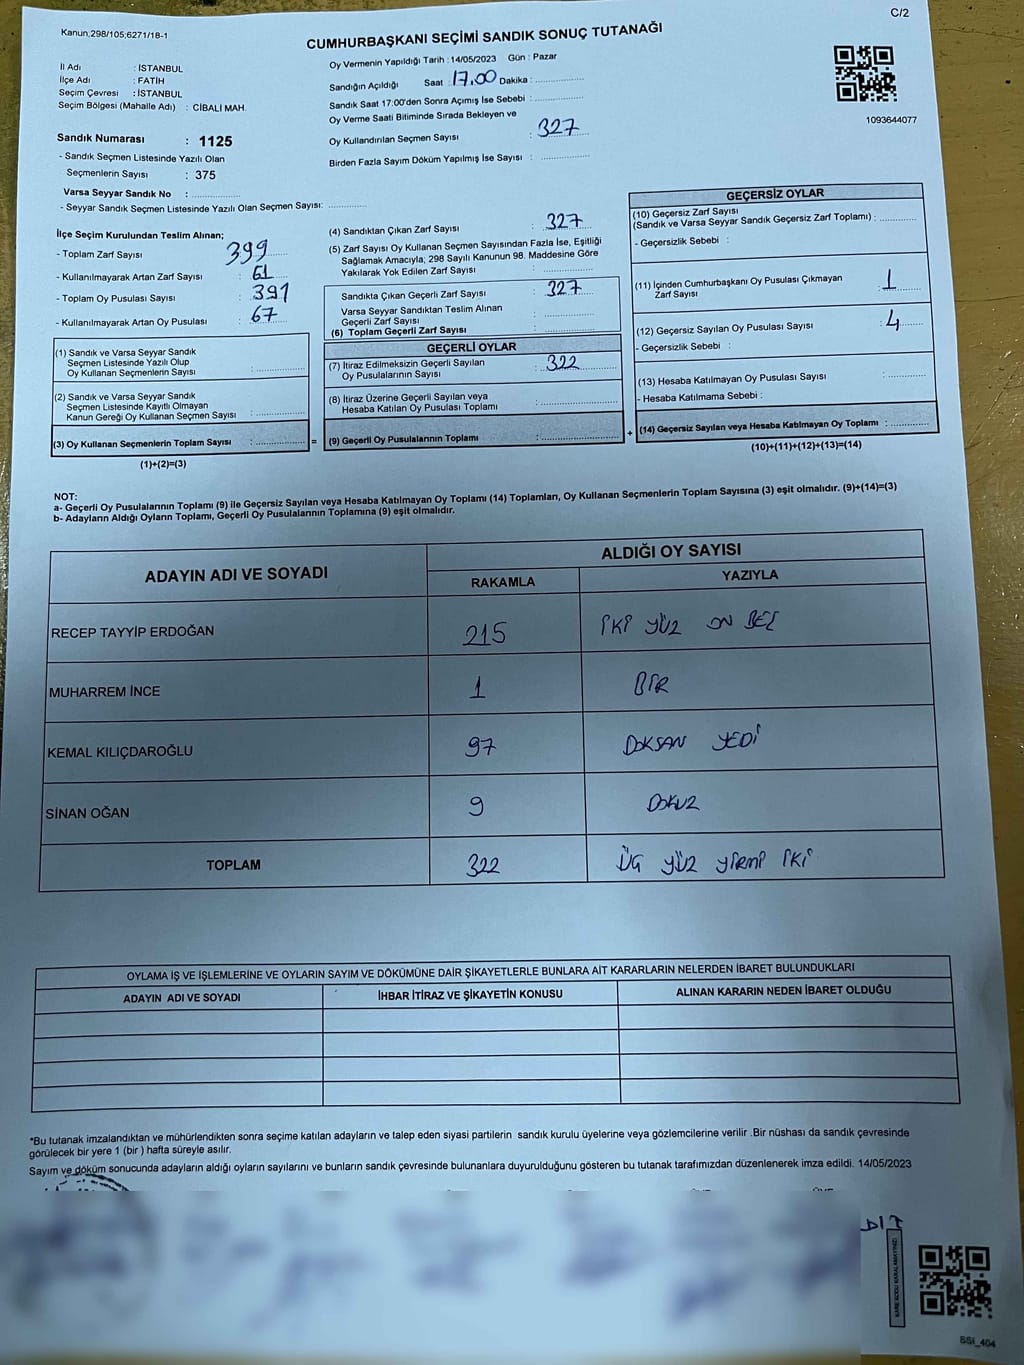 C/2
Kanun;298/105;6271/18-1
CUMHURBAŞKANI SEÇİMİ SANDIK SONUÇ TUTANAĞI
İl Adı : İSTANBUL
İlçe Adı : FATİH
Seçim Çevresi : İSTANBUL
Seçim Bölgesi (Mahalle Adı) : CİBALİ MAH.
Sandık Numarası : 1125
- Sandık Seçmen Listesinde Yazılı Olan
Seçmenlerin Sayısı : 375
Varsa Seyyar Sandık No :
- Seyyar Sandık Seçmen Listesinde Yazılı Olan Seçmen Sayısı:
Oy Vermenin Yapıldığı Tarih : 14/05/2023 Gün : Pazar
Sandığın Açıldığı Saat 17.00 Dakika :
Sandık Saat 17:00'den Sonra Açımış İse Sebebi :
Oy Verme Saati Bitiminde Sırada Bekleyen ve
Oy Kullandırılan Seçmen Sayısı : 327
Birden Fazla Sayım Döküm Yapılmış İse Sayısı :
1093644077
İlçe Seçim Kurulundan Teslim Alınan;
- Toplam Zarf Sayısı : 399
- Kullanılmayarak Artan Zarf Sayısı : 61
- Toplam Oy Pusulası Sayısı : 391
- Kullanılmayarak Artan Oy Pusulası : 67
(1) Sandık ve Varsa Seyyar Sandık
Seçmen Listesinde Yazılı Olup
Oy Kullanan Seçmenlerin Sayısı :
(2) Sandık ve Varsa Seyyar Sandık
Seçmen Listesinde Kayıtlı Olmayan
Kanun Gereği Oy Kullanan Seçmen Sayısı :
(3) Oy Kullanan Seçmenlerin Toplam Sayısı : =
(1)+(2)=(3)
(4) Sandıktan Çıkan Zarf Sayısı : 327
(5) Zarf Sayısı Oy Kullanan Seçmen Sayısından Fazla İse, Eşitliği
Sağlamak Amacıyla; 298 Sayılı Kanunun 98. Maddesine Göre
Yakılarak Yok Edilen Zarf Sayısı :
Sandıkta Çıkan Geçerli Zarf Sayısı : 327
Varsa Seyyar Sandıktan Teslim Alınan
Geçerli Zarf Sayısı :
(6) Toplam Geçerli Zarf Sayısı :
GEÇERLİ OYLAR
(7) İtiraz Edilmeksizin Geçerli Sayılan
Oy Pusulalarının Sayısı : 322
(8) İtiraz Üzerine Geçerli Sayılan veya
Hesaba Katılan Oy Pusulası Toplamı :
(9) Geçerli Oy Pusulalarının Toplamı : +
GEÇERSİZ OYLAR
(10) Geçersiz Zarf Sayısı
(Sandık ve Varsa Seyyar Sandık Geçersiz Zarf Toplamı) :
- Geçersizlik Sebebi :
(11) İçinden Cumhurbaşkanı Oy Pusulası Çıkmayan
Zarf Sayısı : 1
(12) Geçersiz Sayılan Oy Pusulası Sayısı : 4
- Geçersizlik Sebebi :
(13) Hesaba Katılmayan Oy Pusulası Sayısı :
- Hesaba Katılmama Sebebi :
(14) Geçersiz Sayılan veya Hesaba Katılmayan Oy Toplamı :
(10)+(11)+(12)+(13)=(14)
NOT:
a- Geçerli Oy Pusulalarının Toplamı (9) ile Geçersiz Sayılan veya Hesaba Katılmayan Oy Toplamı (14) Toplamları, Oy Kullanan Seçmenlerin Toplam Sayısına (3) eşit olmalıdır. (9)+(14)=(3)
b- Adayların Aldığı Oyların Toplamı, Geçerli Oy Pusulalarının Toplamına (9) eşit olmalıdır.
ADAYIN ADI VE SOYADI
ALDIĞI OY SAYISI
RAKAMLA YAZIYLA
RECEP TAYYİP ERDOĞAN 215 İKİ YÜZ ON BEŞ
MUHARREM İNCE 1 BİR
KEMAL KILIÇDAROĞLU 97 DOKSAN YEDİ
SİNAN OĞAN 9 DOKUZ
TOPLAM 322 ÜÇ YÜZ YİRMİ İKİ
OYLAMA İŞ VE İŞLEMLERİNE VE OYLARIN SAYIM VE DÖKÜMÜNE DAİR ŞİKAYETLERLE BUNLARA AİT KARARLARIN NELERDEN İBARET BULUNDUKLARI
ADAYIN ADI VE SOYADI İHBAR İTİRAZ VE ŞİKAYETİN KONUSU ALINAN KARARIN NEDEN İBARET OLDUĞU
*Bu tutanak imzalandıktan ve mühürlendikten sonra seçime katılan adayların ve talep eden siyasi partilerin sandık kurulu üyelerine veya gözlemcilerine verilir .Bir nüshası da sandık çevresinde
görülecek bir yere 1 (bir ) hafta süreyle asılır.
Sayım ve döküm sonucunda adayların aldığı oyların sayılarını ve bunların sandık çevresinde bulunanlara duyurulduğunu gösteren bu tutanak tarafımızdan düzenlenerek imza edildi. 14/05/2023
KARE KODU KARALAMAYINIZ!
SSI_404